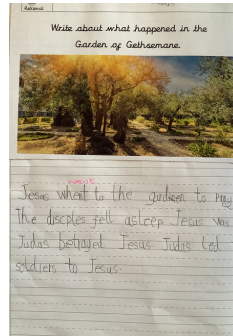 Retrieval
Write about what happened in the
Garden of Gethsemane.
went
Jesus whent to the gardisen to pray
The disciples fell asleep Jesus was
Judas betrayed Jesus. Judas led
soldiers to Jesus.